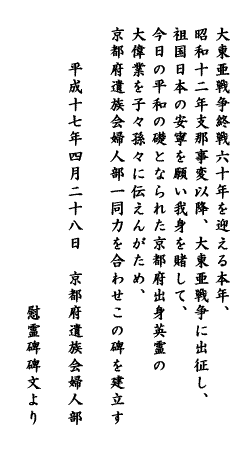 大東亜戦争終戦六十年を迎える本年、
昭和十二年支那事変以降、大東亜戦争に出征し、
祖国日本の安寧を願い我身を賭して、
今日の平和の礎となられた京都府出身英霊の
大偉業を子々孫々に伝えんがため、
京都府遺族会婦人部一同力を合わせこの碑を建立す
平成十七年四月二十八日 京都府遺族会婦人部
慰霊碑碑文より